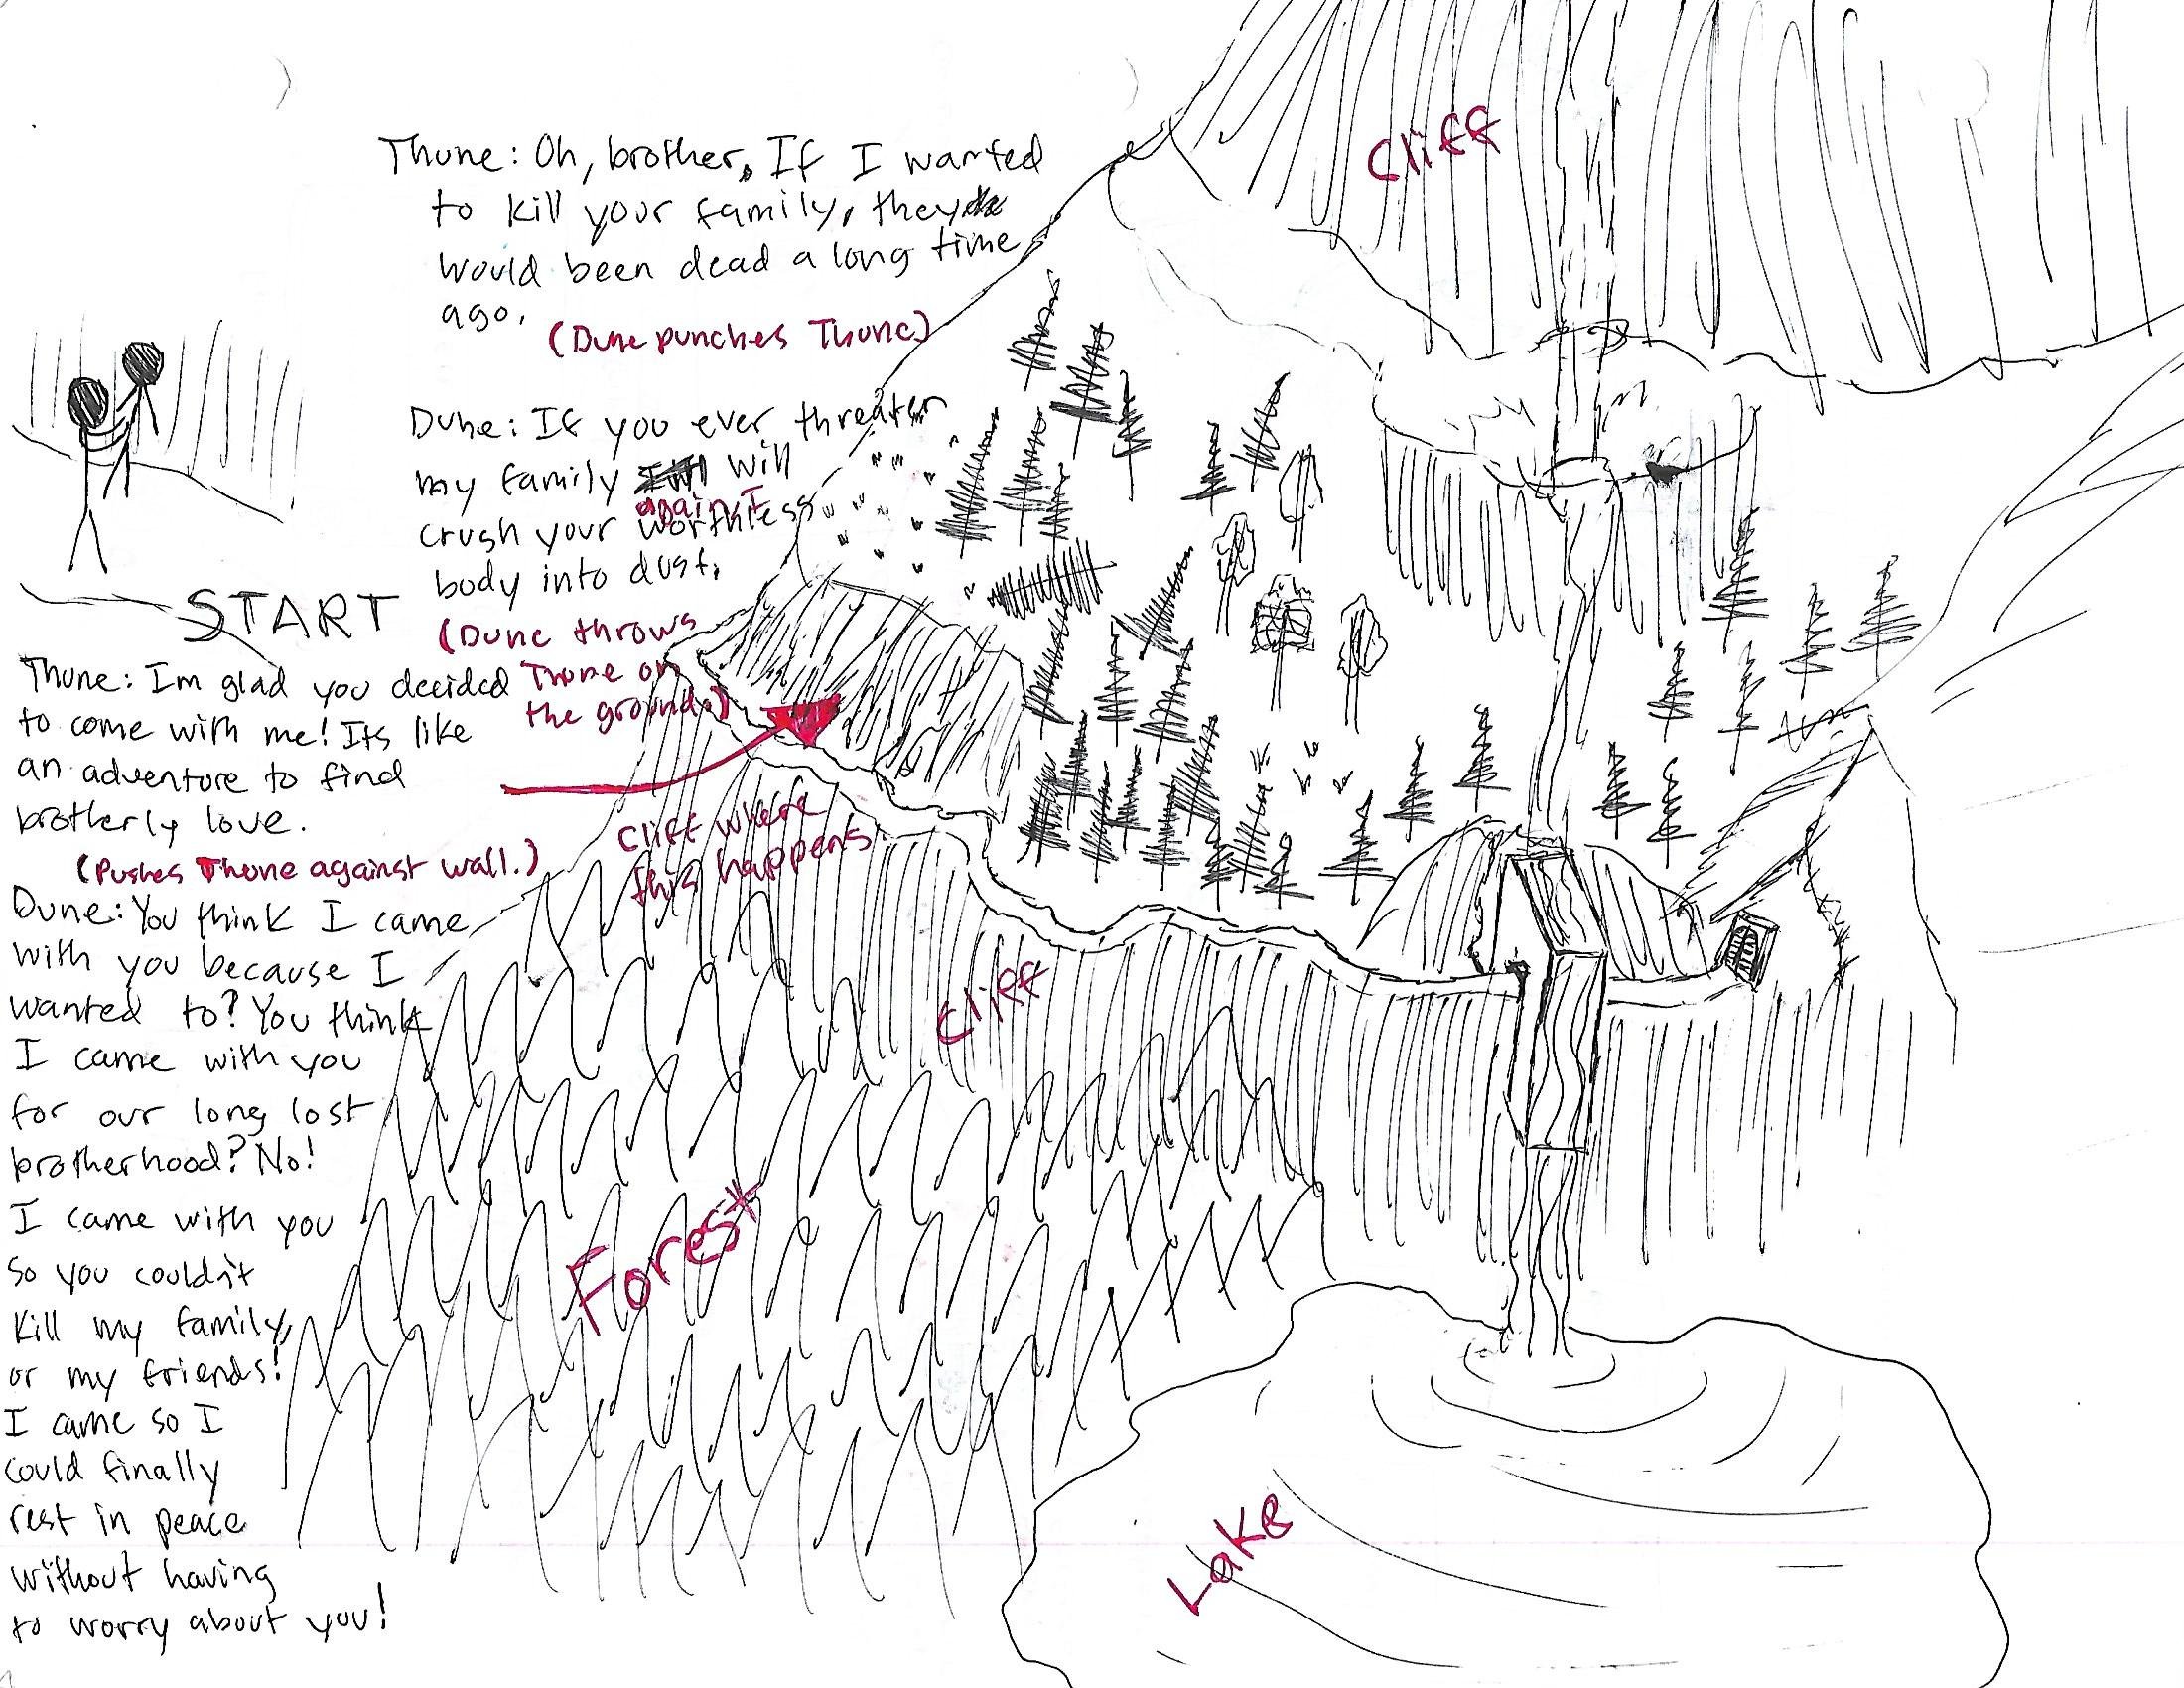 START
Thune: Im glad you decided
to come with me! Its like
an adventure to find
brotherly love.
(Pushes Thune against wall.)
Dune: You think I came
with you because I
wanted to? You think
I came with you
for our long lost
brotherhood? No!
I came with you
so you couldn't
kill my family,
or my friends!
I came so I
could finally
rest in peace
without having
to worry about you!
Thune: Oh, brother, If I wanted
to kill your family, they
would been dead a long time
ago.
(Dune punches Thune)
Dune: If you ever threaten
my family will
again I
crush your worthless
body into dust.
(Dune throws
Thune on
the ground.)
Cliff where
this happens
Cliff
Cliff
Forest
Lake